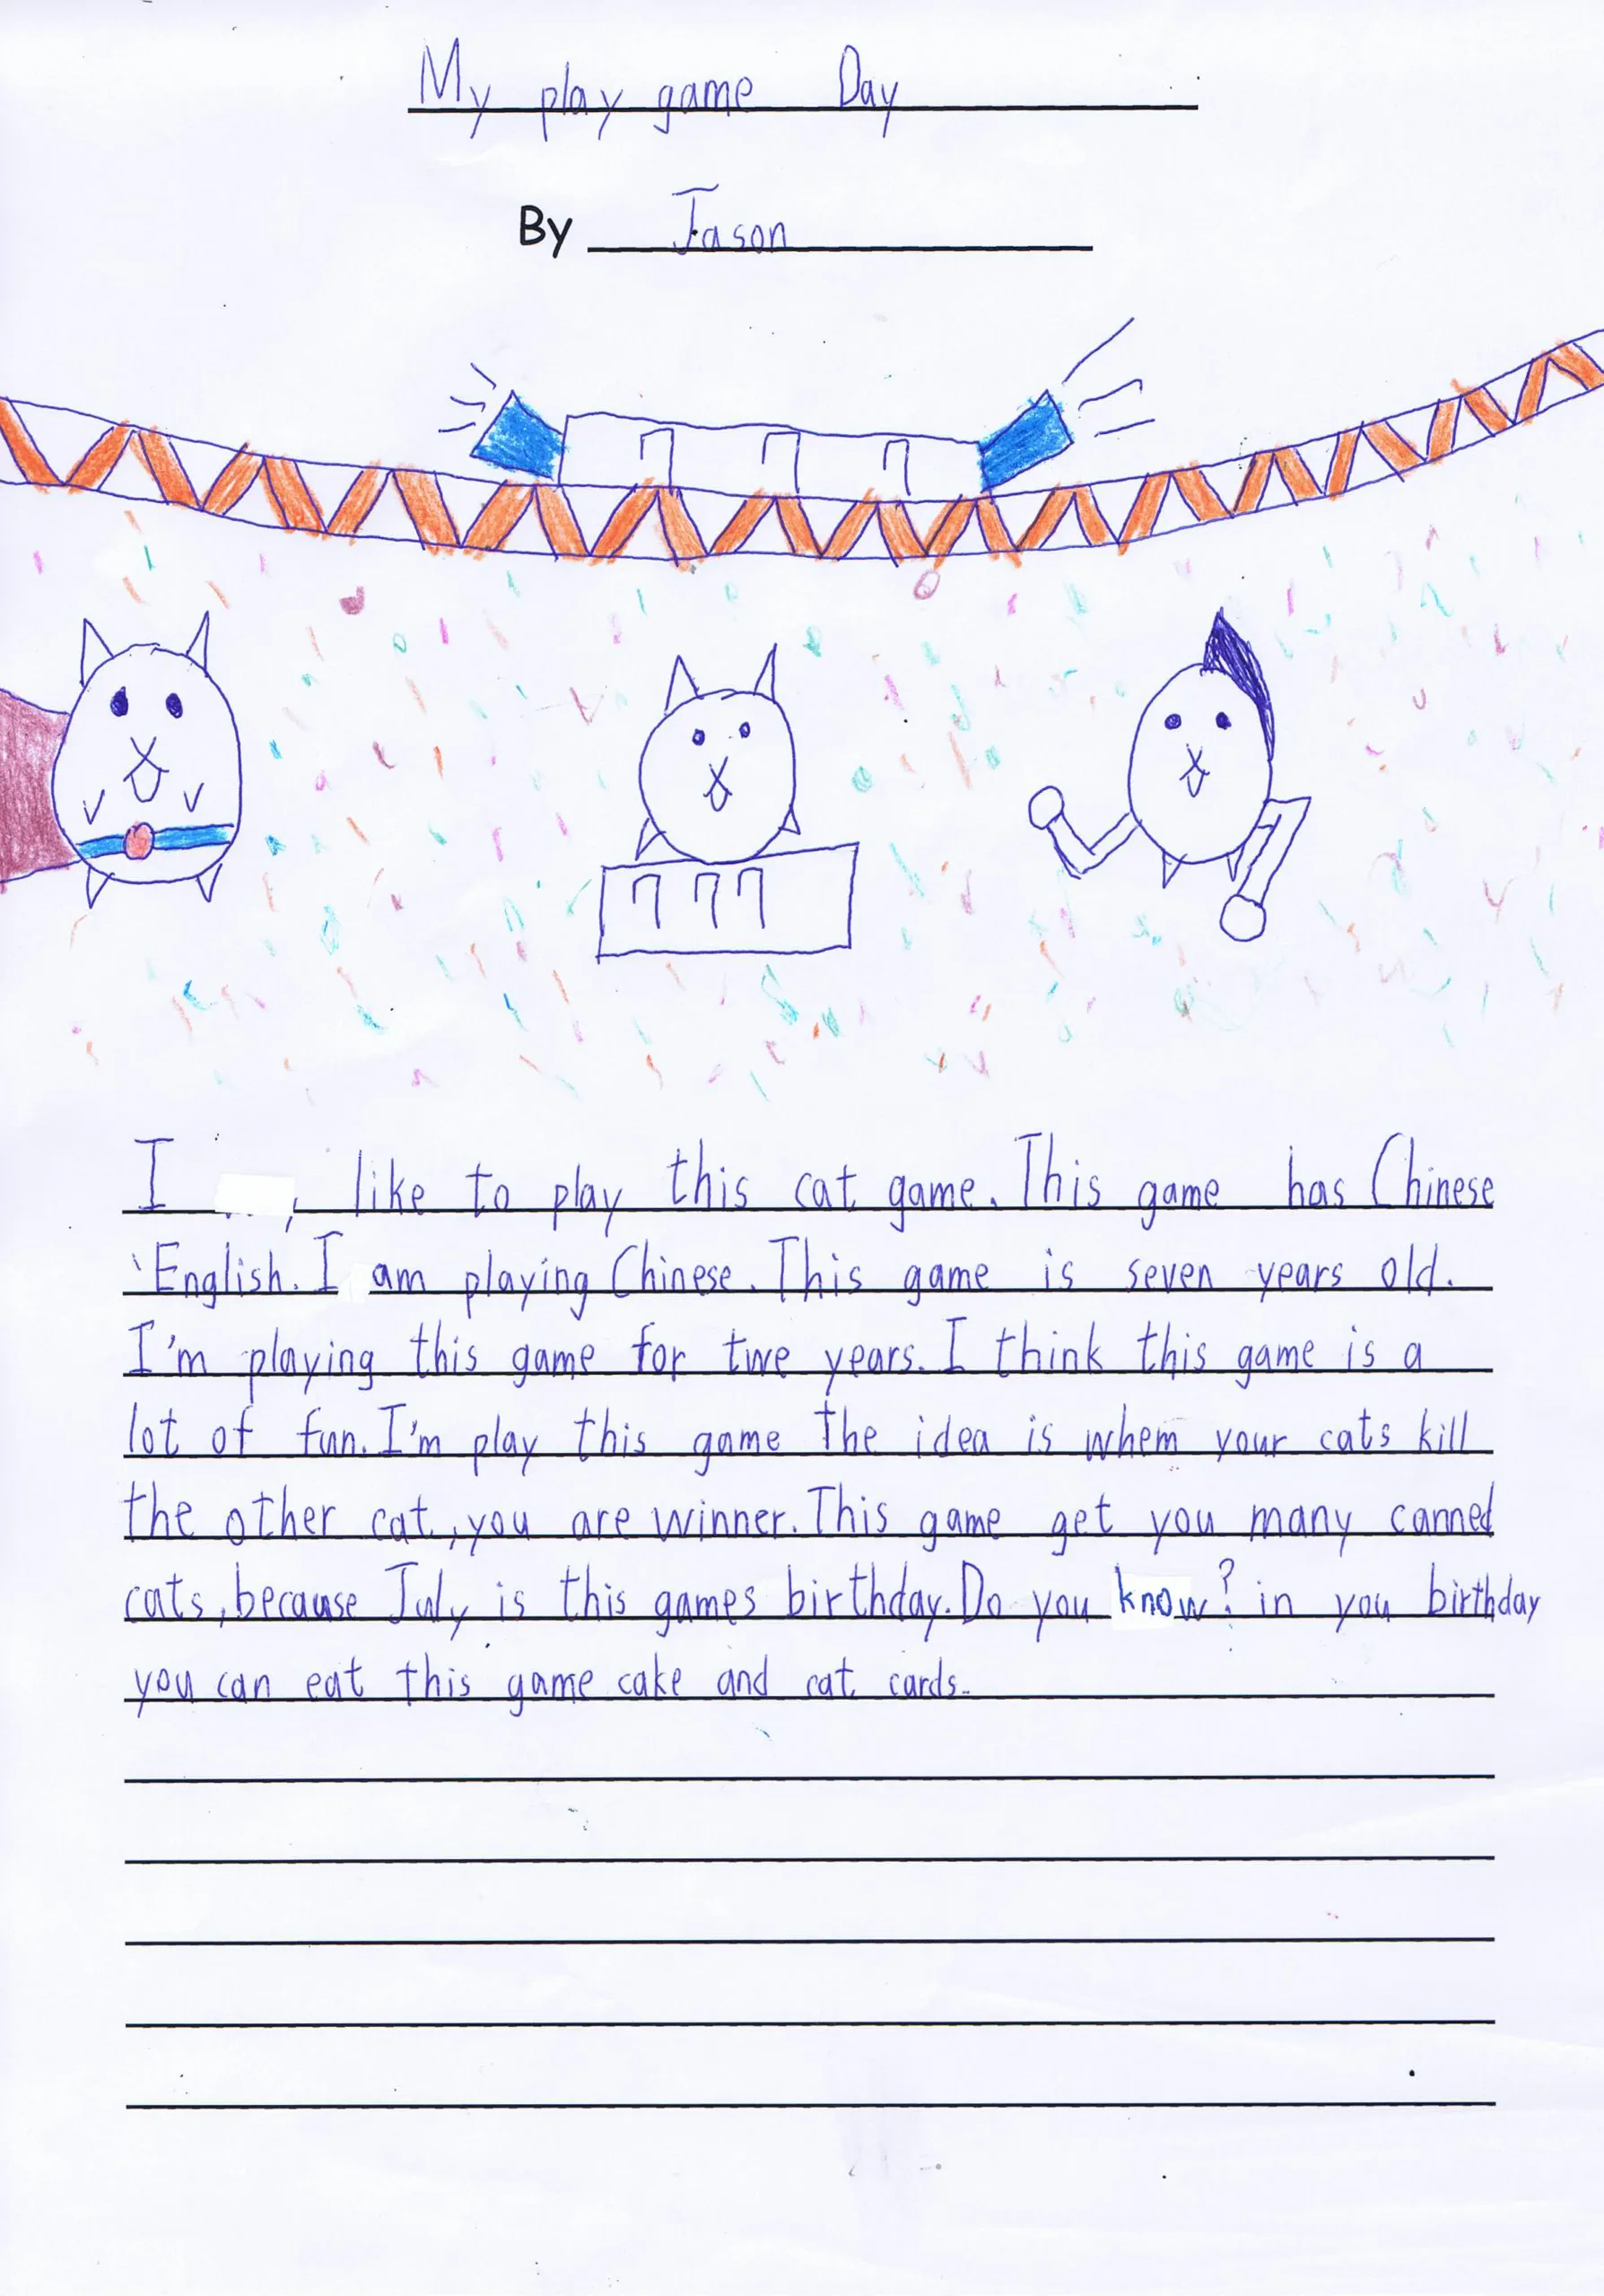 My play game Day
By Jason
7 7 7
7 7 7
I , like to play this cat game. This game has Chinese
`English. I am playing Chinese. This game is seven years old.
I'm playing this game for twe years. I think this game is a
lot of fun. I'm play this game the idea is whem your cats kill
the other cat, you are winner. This game get you many canned
cats, because July is this games birthday. Do you know? in you birthday
you can eat this game cake and cat cards.